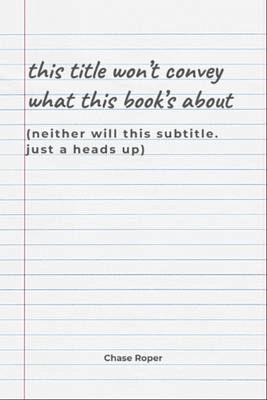 this title won't convey
what this book's about
(neither will this subtitle.
just a heads up)
Chase Roper